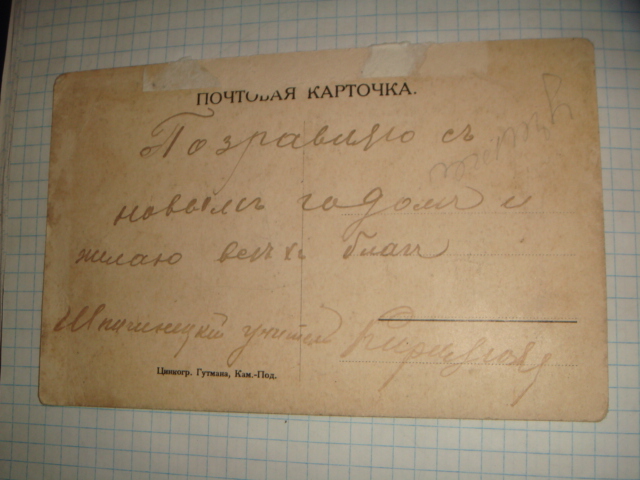 ПОЧТОВАЯ КАРТОЧКА.
Позравляю съ
новымъ годомъ и
желаю всѣхъ благ
учитель
Цинкогр. Гутмана, Кам.-Под.